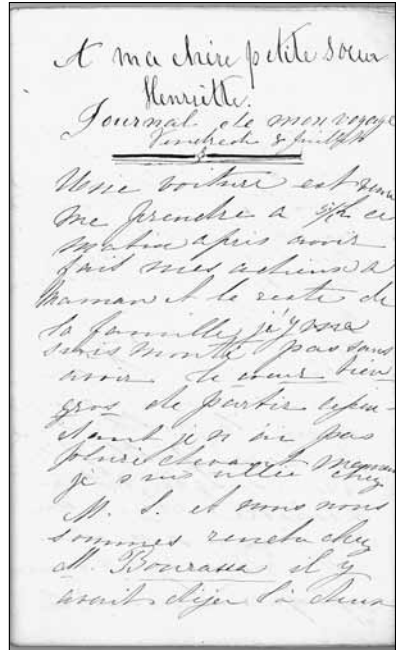 A ma chère petite sœur
Henriette.
Journal de mon voyage
Vendredi 8 Juillet
Une voiture est venu
me prendre a ce
matin apres avoir
fait mes adieux a
Maman et le reste de
la famille, j'y
suis monté pas sans
avoir le cœur bien
gros de partir cepen-
dant je n'ai pas
pleuré devant maman
je suis allée chez
M. S. et nous nous
sommes rendu chez
M. Bourassa il y
avait deja là deux